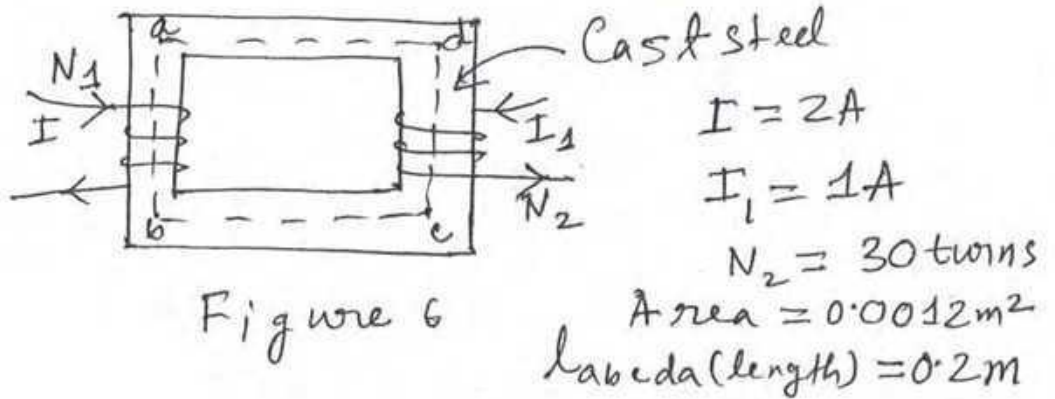 a
d
Cast steel
N1
I
I1
I = 2A
I1 = 1A
b
c
N2
N2 = 30 turns
Figure 6
Area = 0.0012m²
labcda (length) = 0.2m